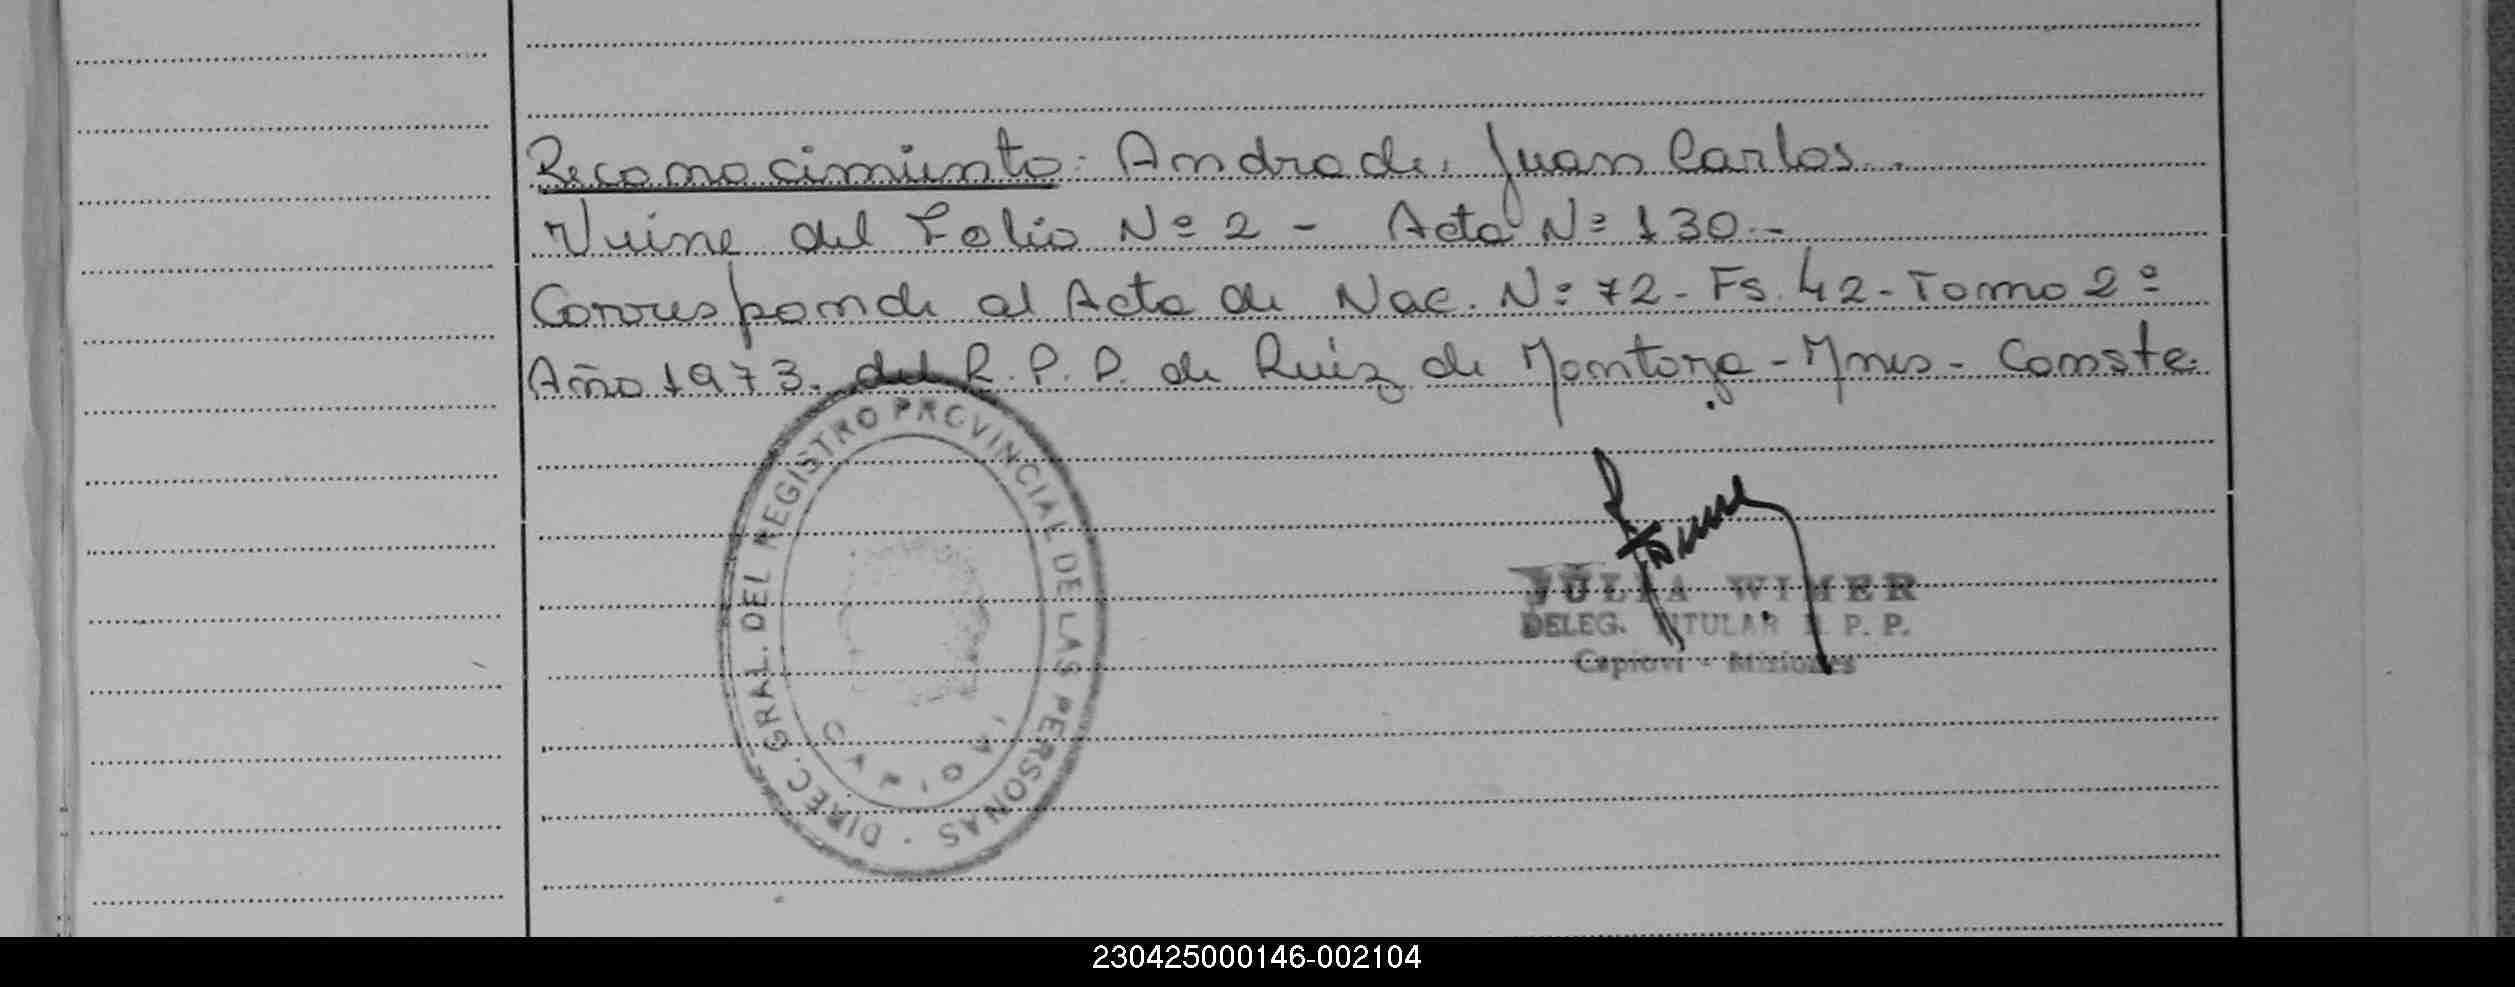 Reconocimiento: Andrade, Juan Carlos.-
Viene del Folio Nº 2 - Acta Nº 130.-
Corresponde al Acta de Nac. Nº 72 - Fs. 42 - Tomo 2º
Año 1973. del R. P. P. de Ruiz de Montoya - Mnes - Conste.
DIREC. GRAL. DEL REGISTRO PROVINCIAL DE LAS PERSONAS
JULIA WIMER
DELEG. TITULAR R. P. P.
Capioví - Misiones
230425000146-002104